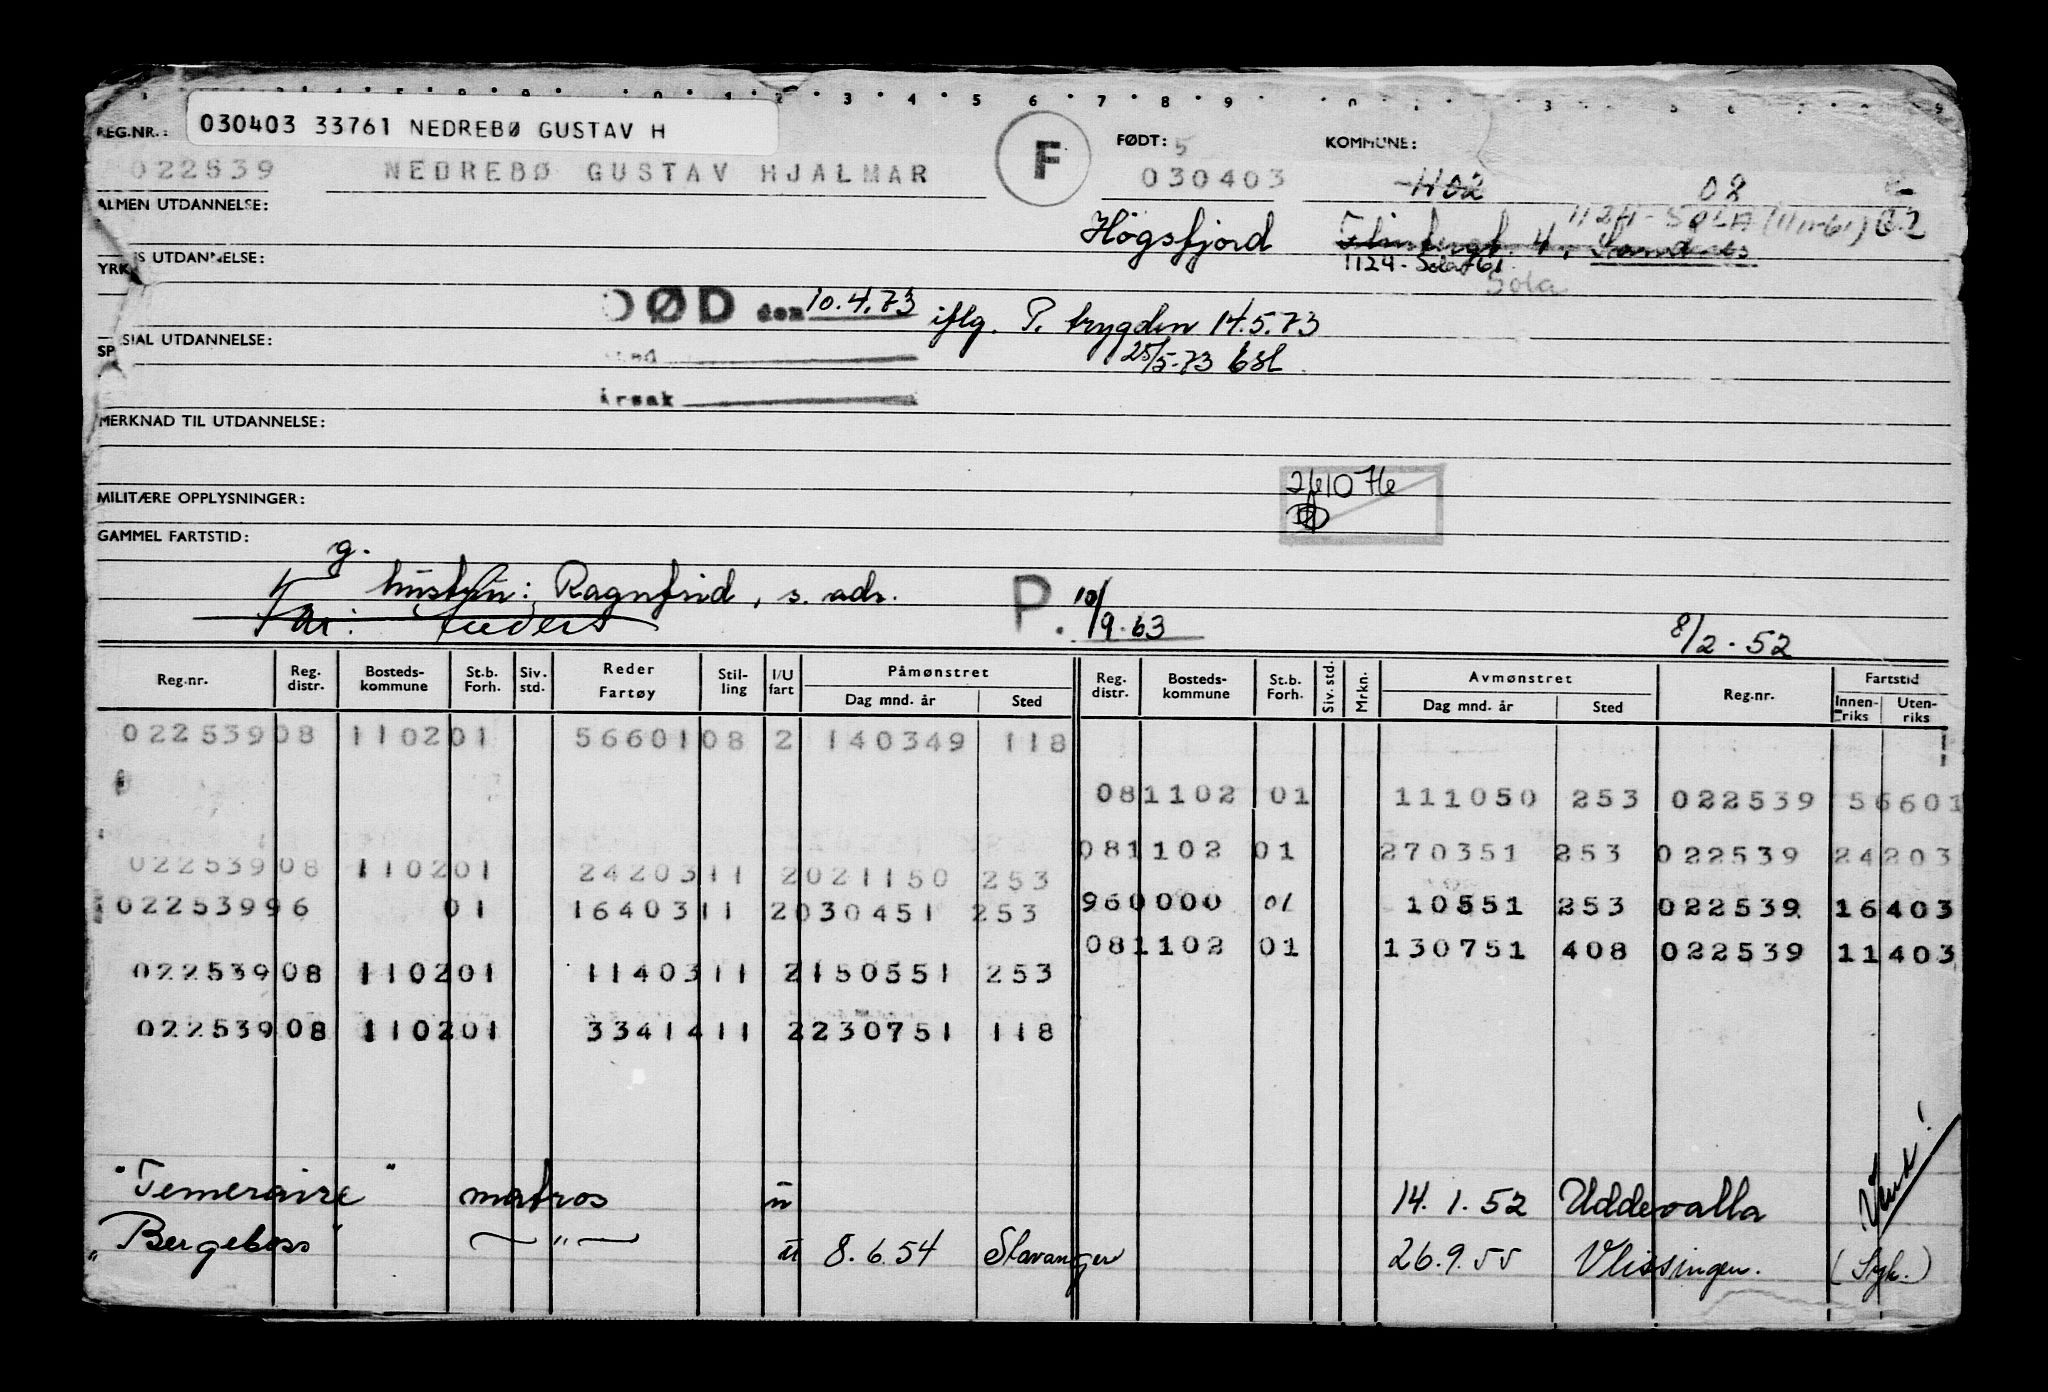 REG.NR.: 030403 33761 NEDREBØ GUSTAV H F FØDT: 5 KOMMUNE:
022539 NEDREBØ GUSTAV HJALMAR 030403 1102 08
ALMEN UTDANNELSE: Högsfjord 4, Sandnes 1124 - SOLA (11/1-61) 02
YRKES UTDANNELSE: 1124 - Sola 61
Sola
DØD den 10.4.73 iflg. P. trygden 14.5.73
SPESIAL UTDANNELSE: sted 25/5-73 bsl
årsak
MERKNAD TIL UTDANNELSE:
261076
MILITÆRE OPPLYSNINGER:
GAMMEL FARTSTID:
g.
hustru: Ragnfrid, s. adr. P. 10/9-63
Far: Peder 8/2-52
Reg.nr. Reg. distr. Bosteds-kommune St.b. Forh. Siv. std. Reder Fartøy Stil-ling I/U fart Påmønstret Dag mnd. år Sted Reg. distr. Bosteds-kommune St.b. Forh. Siv. std. Mrkn. Avmønstret Dag mnd. år Sted Reg.nr. Fartstid Innen-riks Uten-riks
022539 08 1102 01 56601 08 2 140349 118
08 1102 01 111050 253 022539 56601
08 1102 01 270351 253 022539 24203
022539 08 1102 01 24203 11 2 021150 253
022539 96 01 16403 11 2 030451 253 96 0000 01 10551 253 022539 16403
08 1102 01 130751 408 022539 11403
022539 08 1102 01 11403 11 2 150551 253
022539 08 1102 01 33414 11 2 230751 118
"Temeraire" matros u 14.1.52 Uddevalla
"Bergeboss" — " — u 8.6.54 Stavanger 26.9.55 Vlissingen. (Syk.)